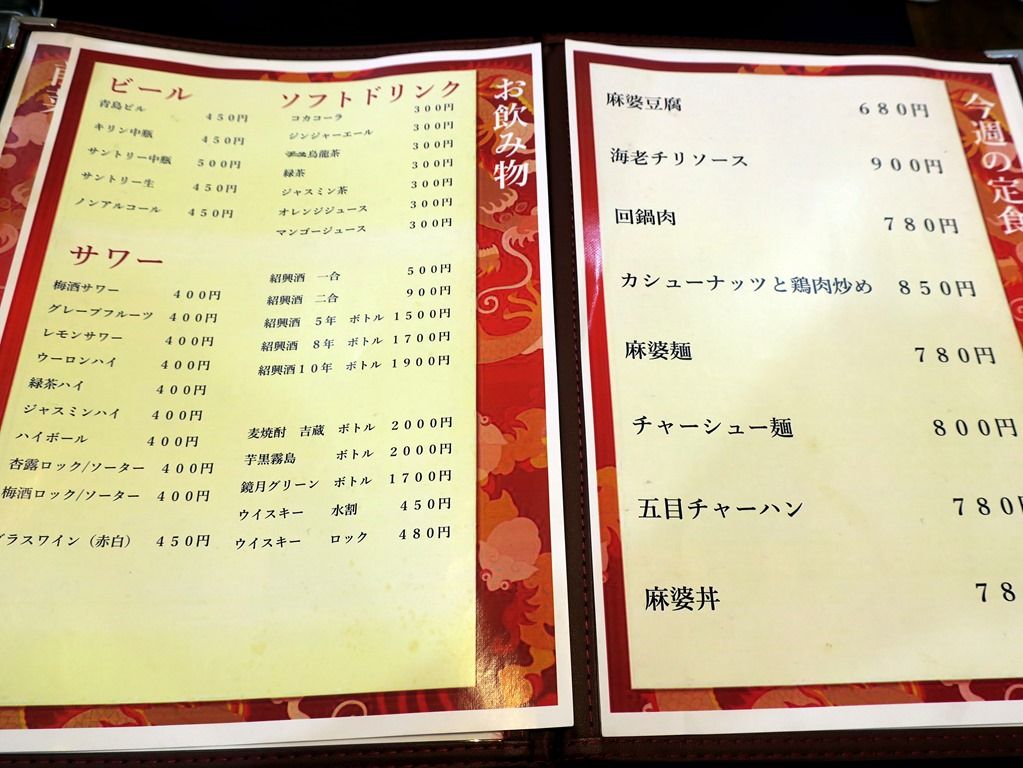 お飲み物
ビール
青島ビル 450円
キリン中瓶 450円
サントリー中瓶 500円
サントリー生 450円
ノンアルコール 450円
サワー
梅酒サワー 400円
グレープフルーツ 400円
レモンサワー 400円
ウーロンハイ 400円
緑茶ハイ 400円
ジャスミンハイ 400円
ハイボール 400円
杏露ロック/ソーター 400円
梅酒ロック/ソーター 400円
グラスワイン（赤白） 450円
ソフトドリンク
コカコーラ 300円
ジンジャーエール 300円
烏龍茶 300円
緑茶 300円
ジャスミン茶 300円
オレンジジュース 300円
マンゴージュース 300円
紹興酒 一合 500円
紹興酒 二合 900円
紹興酒 5年 ボトル 1500円
紹興酒 8年 ボトル 1700円
紹興酒10年 ボトル 1900円
麦焼酎 吉蔵 ボトル 2000円
芋黒霧島 ボトル 2000円
鏡月グリーン ボトル 1700円
ウイスキー 水割 450円
ウイスキー ロック 480円
今週の定食
麻婆豆腐 680円
海老チリソース 900円
回鍋肉 780円
カシューナッツと鶏肉炒め 850円
麻婆麺 780円
チャーシュー麺 800円
五目チャーハン 780円
麻婆丼 78